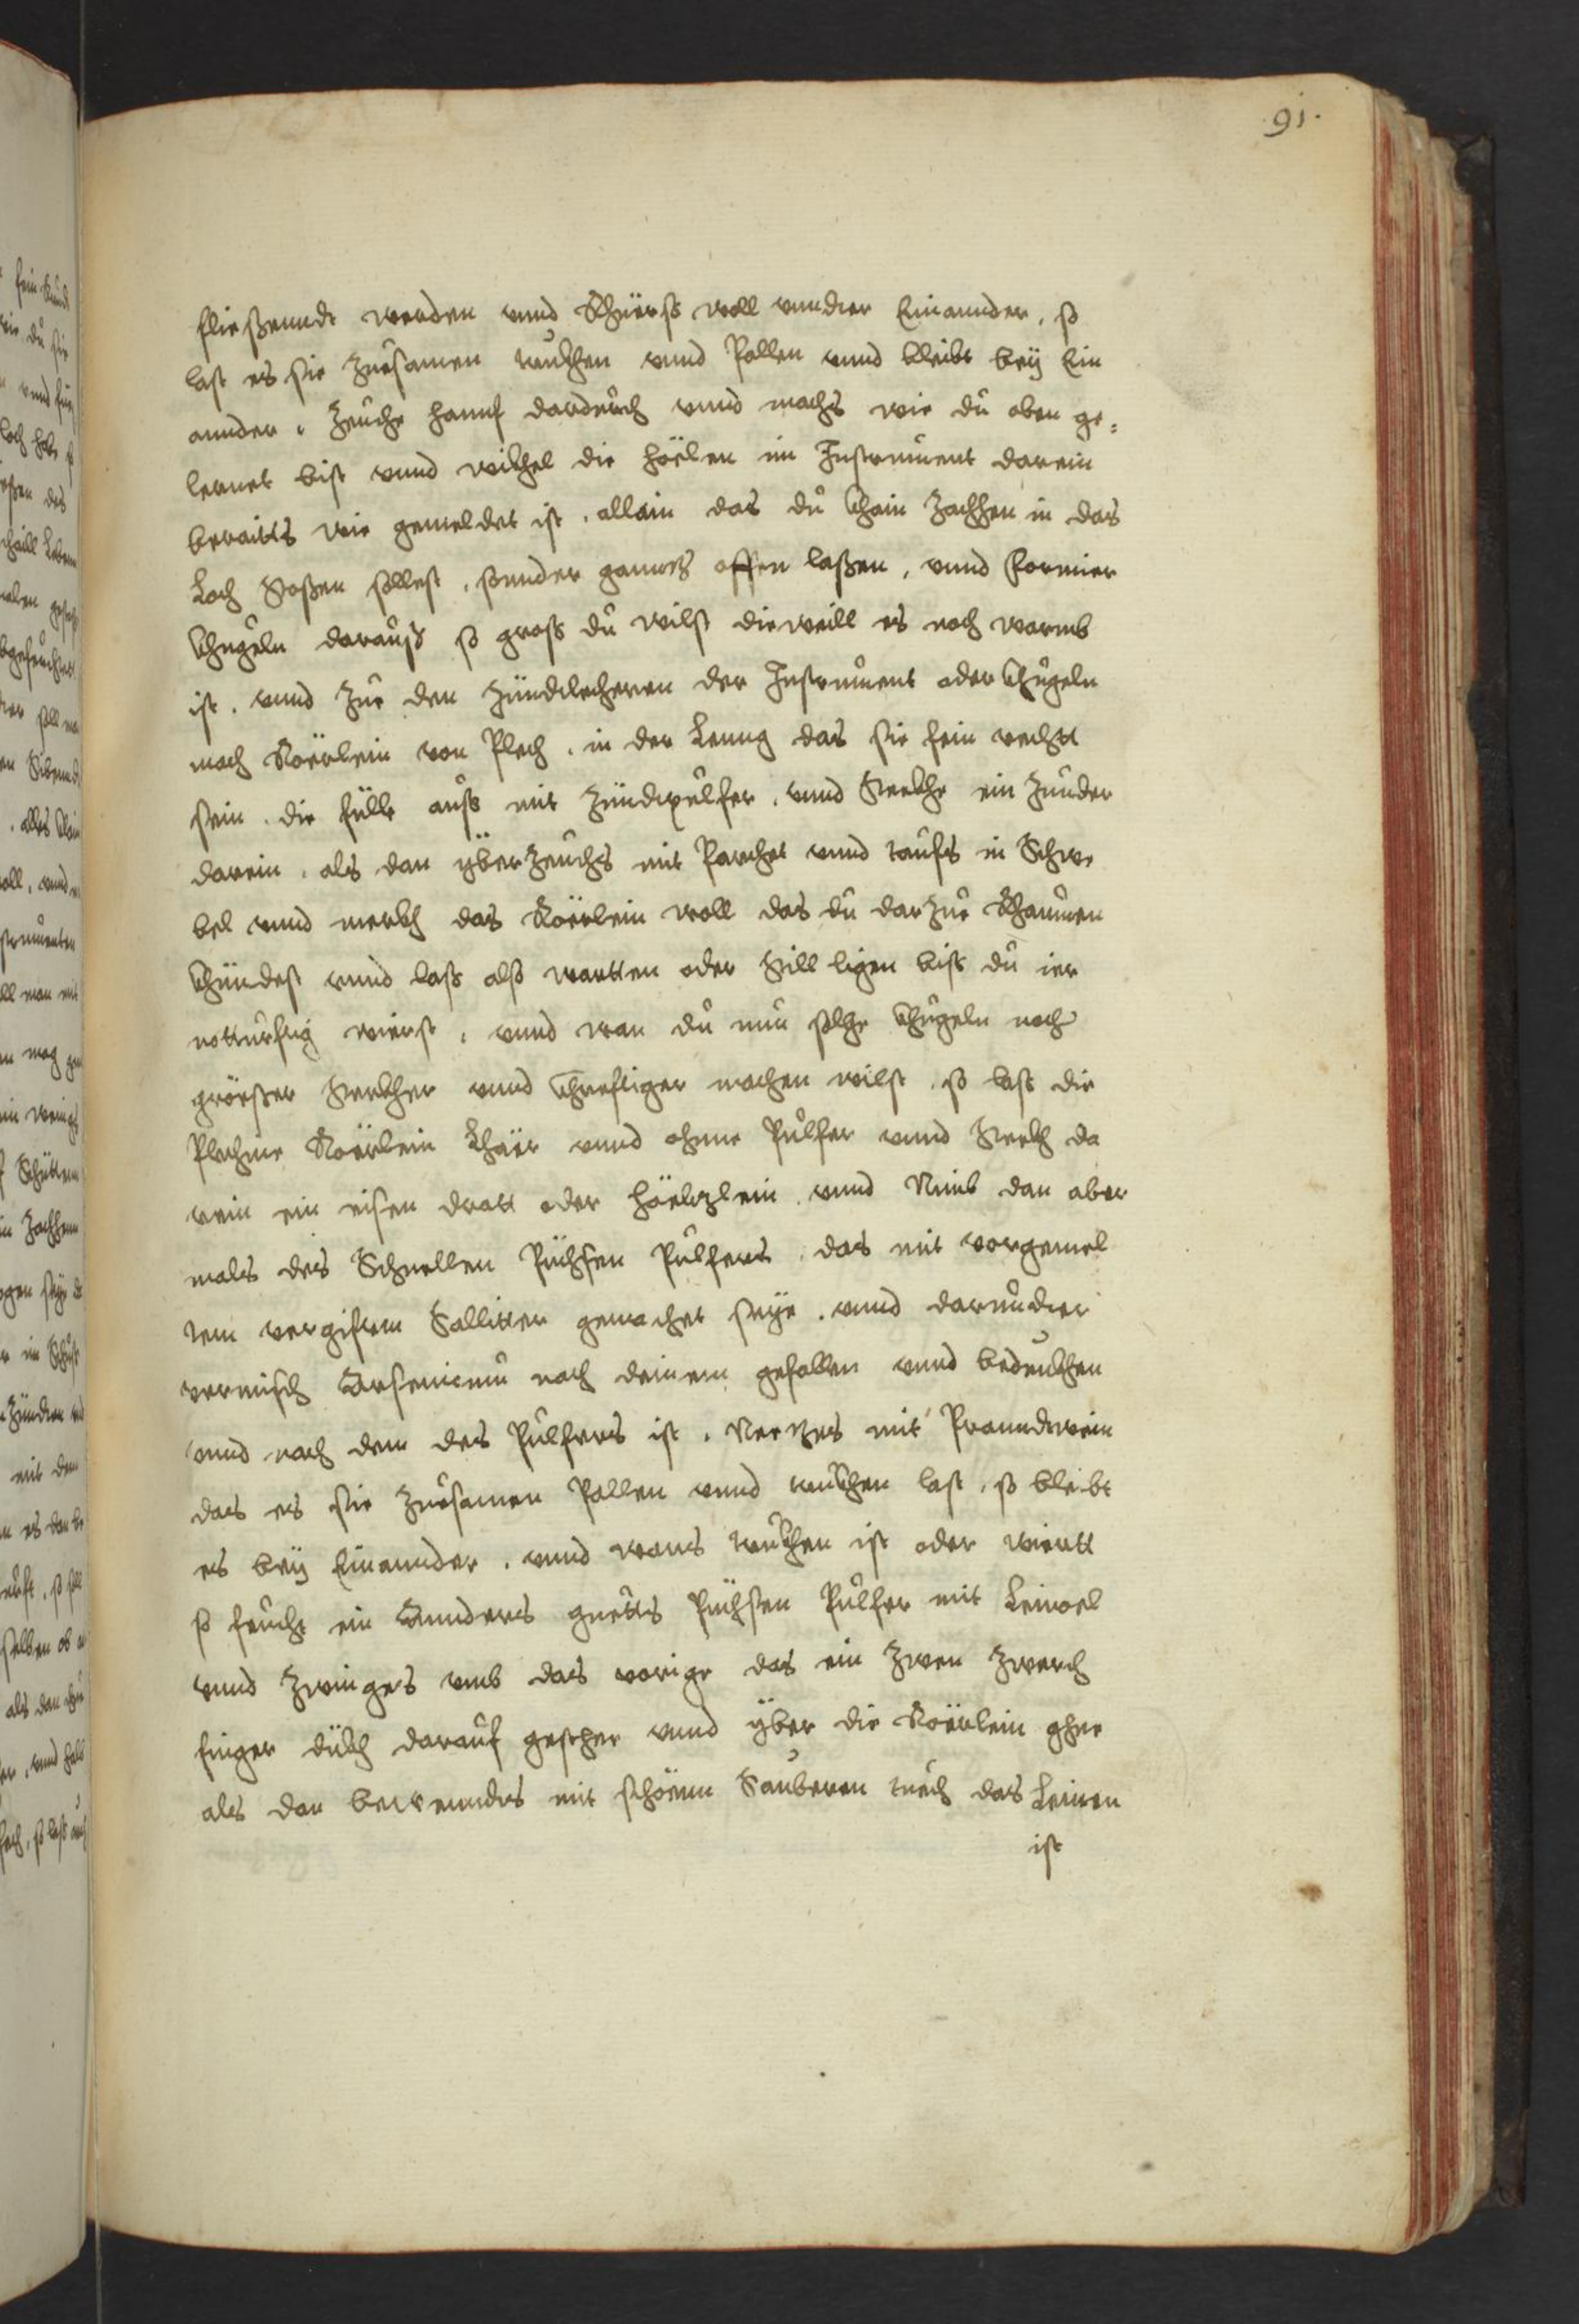 91.
fliessenndt werden vnnd Rhüerß woll vnnder Einannder, so
last es sie zuesamen truckhen vnnd Pallen vnnd bleibt bey Ein
annder, Zeuche Hannf dardurch vnnd machs wie du oben ge=
lernet bist vnnd wikhel die höelen im Instrument darein
beraitts wie gemeldet ist, allain das du khain Zachhen in das
Loch Stoßen sollest, sonnder ganntz offen laßen, vnnd Formier
khugeln darauß so groß du wilst dieweill es noch warmb
ist, vnnd Zue den Zündtlecheren der Instrument oder khugeln
mach Röerlein von Plech, in der Leung das sie fein rechtt
sein, die fülle auß mit Zündtpulfer, vnnd Steckhe ein Zunder
darein, als dan yberzeuchs mit Parchet vnnd taufs in Schwe
bel vnnd merkh das Röerlein woll das du darzue Rhaumen
khündest vnnd laß also wartten oder Still ligen biß du ier
notturftig wierst, vnnd wan du nun solche khugeln noch
größer Sterkher vnnd khreftiger machen wilst, so laß die
Plechine Röerlein Lhäer vnnd ohne Pulfer vnnd Steckh da
rein ein eisen dratt oder höelzlein, vnnd Nimb dan aber
mals des Schnellen Püchsen Pulfers, das mit vorgemel
tem vergiftem Sallitter gemachet seye, vnnd darunder
vermisch Arsenicum nach deinem gefallen vnnd bedunkhen
vnnd nach dem des Pulfers ist, Netzes mit Pranndtwein
das es sie zuesamen Pallen vnnd truckhen last, so bleibt
es bey Einannder, vnnd wans truckhen ist oder wiertt
so feucht ein Annders guetts Püchsen Pulfer mit Leinoel
vnnd Zwinges vmb das vorige das ein Zwen Zwerch
finger dükh darauf gestehe vnnd yber die Röerlein gehe
als dan bewenndts mit schöenn Sauberen tuech das Leinen
ist